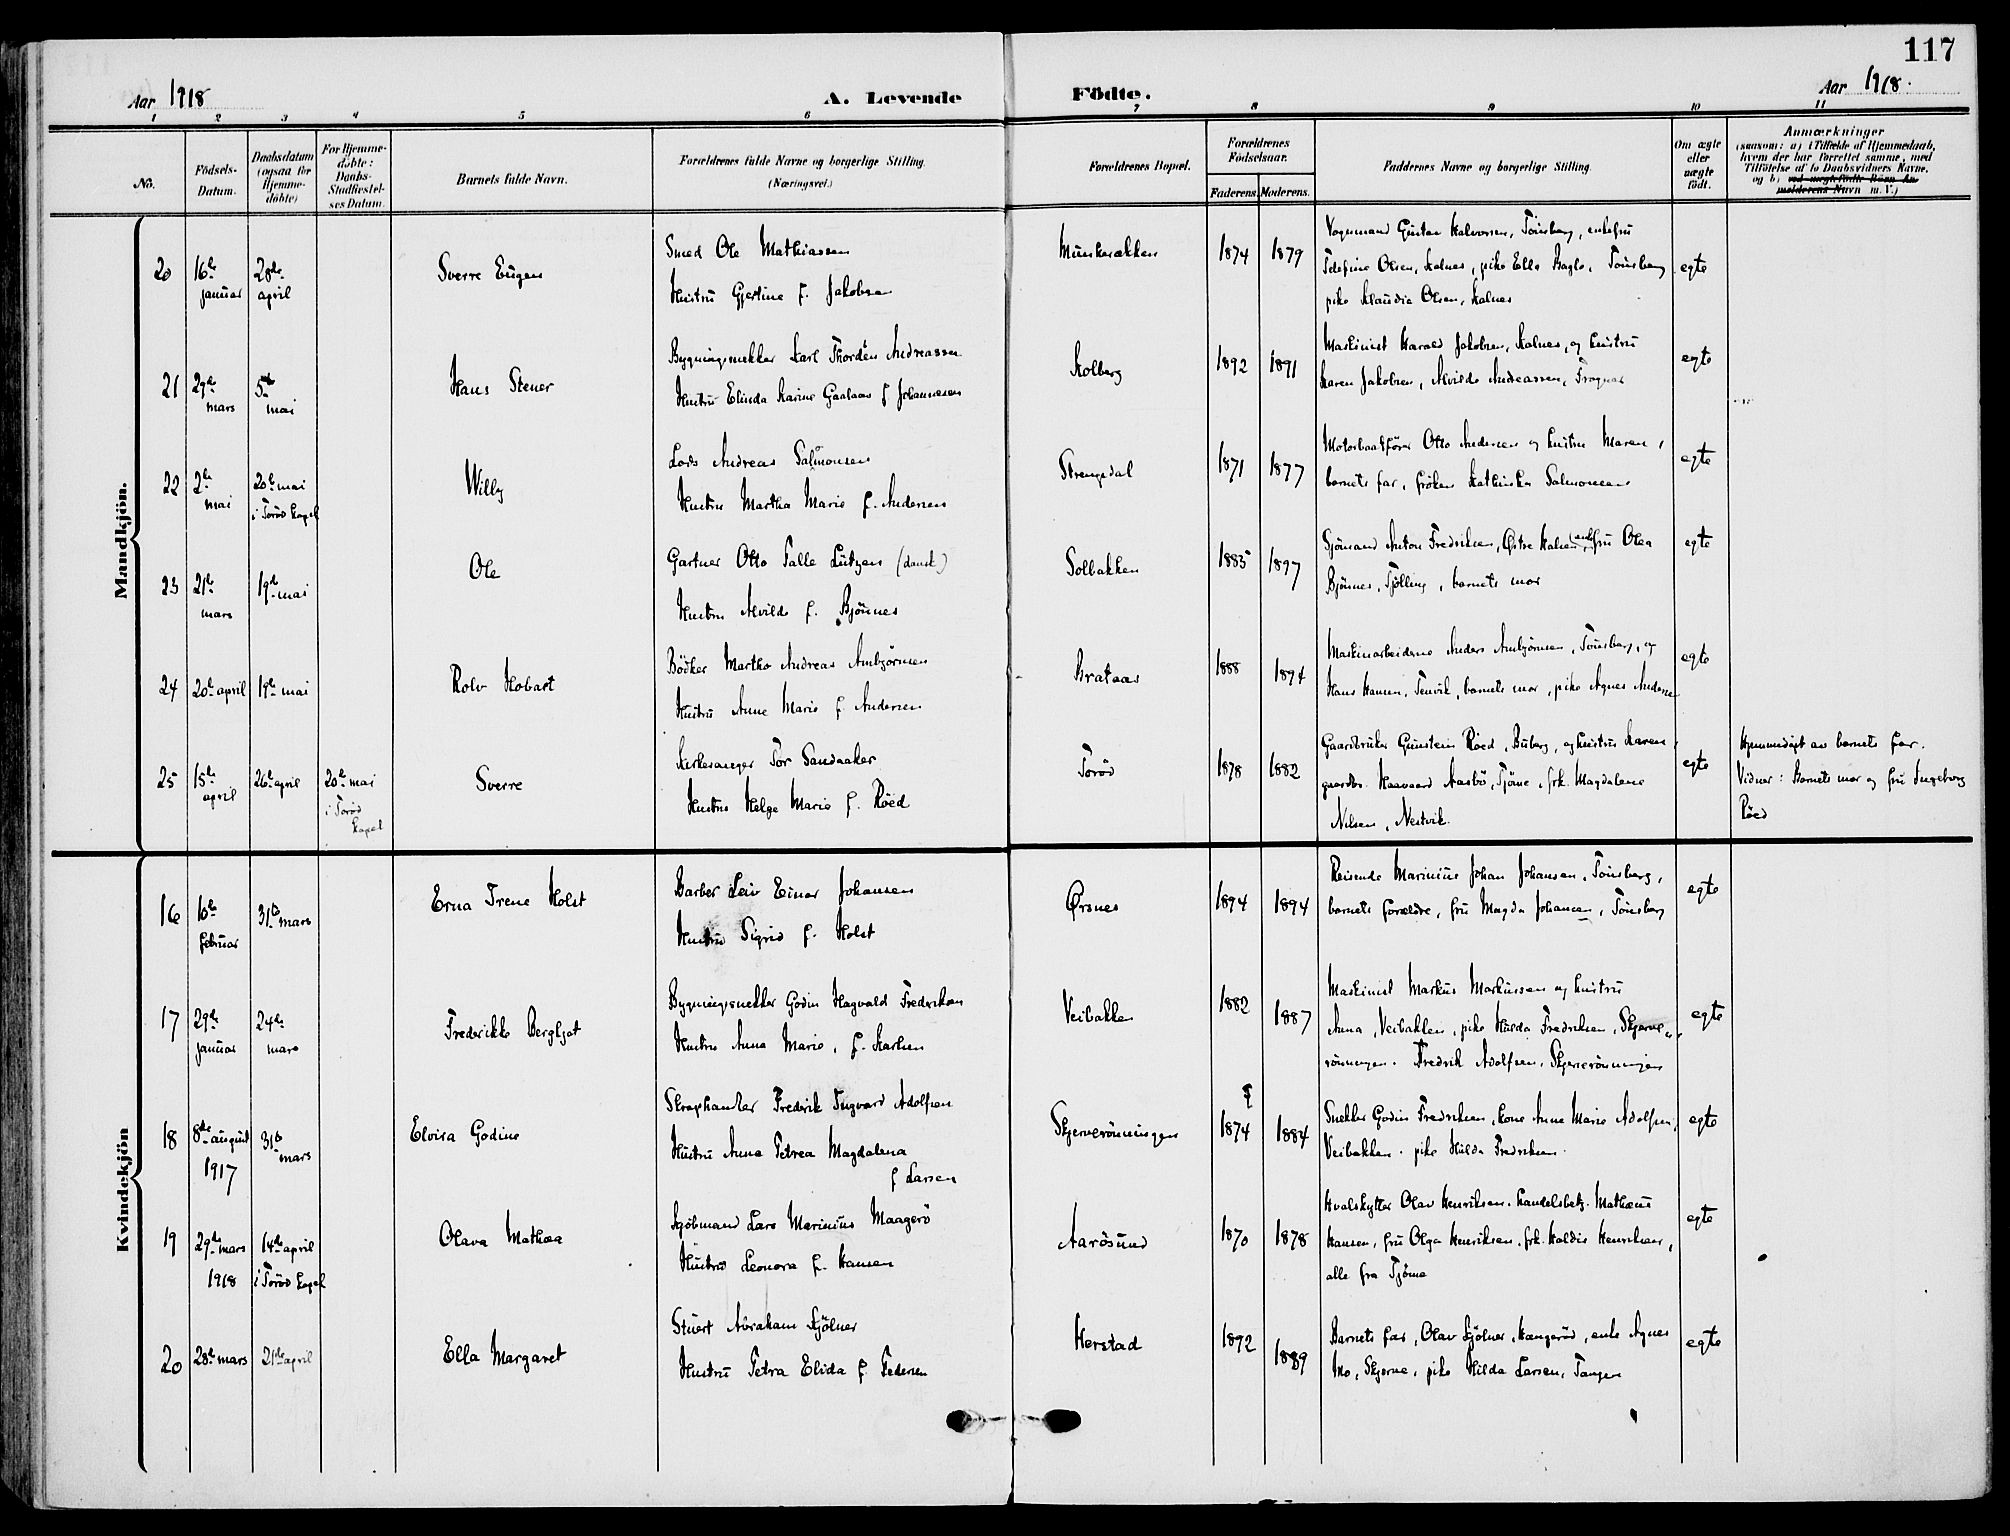 117
Aar 1918
A. Levende Födte.
Aar 1918.
1 2 3 4 5 6 7 8 9 10 11
No.
Födsels-
Datum.
Daabsdatum
(ogsaa for
Hjemme-
döbte)
For Hjemme-
döbte:
Daabs-
Stadfæstel-
ses Datum.
Barnets fulde Navn.
Forældrenes fulde Navne og borgerlige Stilling.
(Næringsvei.)
Forældrenes Bopæl.
Forældrenes
Födselsaar.
Faderens. Moderens.
Faddernes Navne og borgerlige Stilling.
Om ægte
eller
uægte
født.
Anmærkninger
(saasom: a) i Tilfælde af Hjemmedaab,
hvem der har forrettet samme, med
Tilföielse af to Daabsvidners Navne.
og b) ved uægtefödte Börn An-
melderens Navn m. V.)
Mandkjön.
20
16de januar
28de april
Sverre Eugen
Smed Ole Mathiassen
Hustru Gjertine f. Jakobsen
Munkerækken
1874
1879
Vognmand Gustav Halvorsen, Tönsberg, enkefru
Olsen, Kalnes, pike Ella Baglo, Tönsberg
pike Klaudia Olsen, Kalnes
egte
21
29de mars
5te mai
Hans Stener
Bygningssnekker Karl Thordén Andreassen
Hustru Elinda Karine Gaalaas f Johannesen
Kolberg
1892
1891
Maskinist Harald Jakobsen, Kalnes, og hustru
Karen Jakobsen, Alvilde Andreassen, Fragnas
egte
22
2de mai
20de mai
i Torød kapel
Willy
Lods Andreas Salmonsen
Hustru Martha Marie f. Andersen
Strengsdal
1871
1877
Motorbaatfører Otto Andersen og hustru Maren,
barnets far, frøken Kathinka Salmonsen
egte
23
21de mars
19de mai
Ole
Gartner Otto Palle Lützen (dansk)
Hustru Alvilde f. Bjönnes
Solbakken
1885
1897
Sjömand Anton Fredriksen, Østre Halsen, enkefru Olea
Bjönnes, Tjölling, barnets mor
egte
24
20de april
19de mai
Rolv Hobart
Bödker Martho Andreas Ambjörnsen
Hustru Anne Marie f. Andersen
Brataas
1888
1894
Maskinarbeiderne Anders Ambjörnsen, Tönsberg, og
Hans Hansen, Tenvik, barnets mor, pike Agnes Andersen
egte
25
15de april
26de april
20de mai
i Torød
kapel
Sverre
Kirkesanger Tor Sandaaker
Hustru Helga Marie f. Röed
Torød
1878
1882
Gaardbruker Gunstein Röed, Buberg, og hustru Karen,
gaardbr. Haavaard Aasbö, Tjöme, frk. Magdalene
Nilsen, Nestvik.
egte
Hjemmedöpt av barnets far.
Vidner: Barnets mor og fru Ingeborg
Röed
Kvindekjön
16
10de februar
31te mars
Erna Irene Holst
Barber Leiv Einar Johansen
Hustru Sigrid f. Holst
Ørsnes
1894
1894
Reisende Marinius Johan Johansen, Tönsberg,
barnets forældre, fru Magda Johansen, Tönsberg
egte
17
29de januar
24de mars
Fredrikke Bergljot
Bygningssnekker Godin Hagvald Fredriksen
Hustru Anna Marie, f. Karlsen
Veibakken
1882
1887
Maskinist Markus Markussen og hustru
Anna, Veibakken, pike Hilda Fredriksen, Skjerve-
rönningen. Fredrik Adolfsen, Skjerverönningen
egte
18
8de august
1917
31te mars
Elvira Godine
Skraphandler Fredrik Ingvard Adolfsen
Hustru Anna Petrea Magdalena
f Larsen
Skjerverönningen
1874
1884
Snekker Godin Fredriksen, kone Anne Marie Adolfsen,
Veibakken. pike Hilda Fredriksen.
egte
19
29de mars
1918
14de april
i Torød kapel
Olava Mathea
Sjöbmand Lars Marinius Maagerö
Hustru Leonora f. Hansen
Aarösund
1870
1878
Hvalskytter Olav Henriksen. handelsbetj. Mathæus
Hansen, fru Olga Henriksen. frk. Haldis Henriksen,
alle fra Tjöme
egte
20
28de mars
21de april
Ella Margaret
Stuert Abraham Fjölner
Hustru Petra Elida f. Pedersen
Herstad
1892
1889
Barnets far, Olav Fjölner, Kangeröd, enke Agnes
Mo, Skjerve, pike Hilda Larsen, Tangen
egte